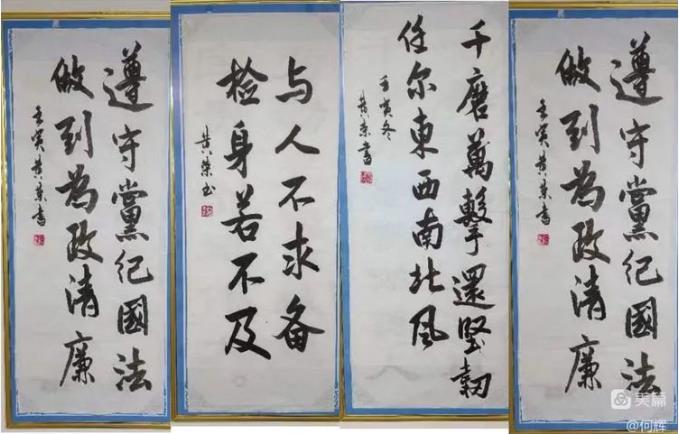 遵守黨纪國法
做到為政清廉
壬寅黄荣書
与人不求备
检身若不及
黄荣书
千磨萬擊還坚韌
任尔東西南北风
壬寅冬
黄荣書
遵守黨纪國法
做到為政清廉
壬寅黄荣書
美篇
@何辉